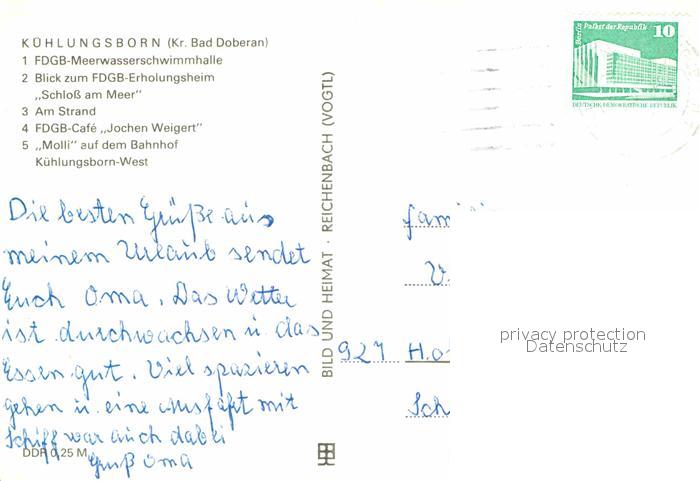 KÜHLUNGSBORN (Kr. Bad Doberan)
1 FDGB-Meerwasserschwimmhalle
2 Blick zum FDGB-Erholungsheim
„Schloß am Meer"
3 Am Strand
4 FDGB-Café „Jochen Weigert"
5 „Molli" auf dem Bahnhof
Kühlungsborn-West
Die besten Grüße aus
meinem Urlaub sendet
Euch Oma. Das Wetter
ist durchwachsen u das
Essen gut. Viel spazieren
gehen u. eine Ausfahrt mit
Schiff war auch dabei
Gruß Oma
DDR 0,25 M
BILD UND HEIMAT · REICHENBACH (VOGTL)
Berlin Palast der Republik 10
DEUTSCHE DEMOKRATISCHE REPUBLIK
Fami
V.
927 Ho
Sch
privacy protection
Datenschutz